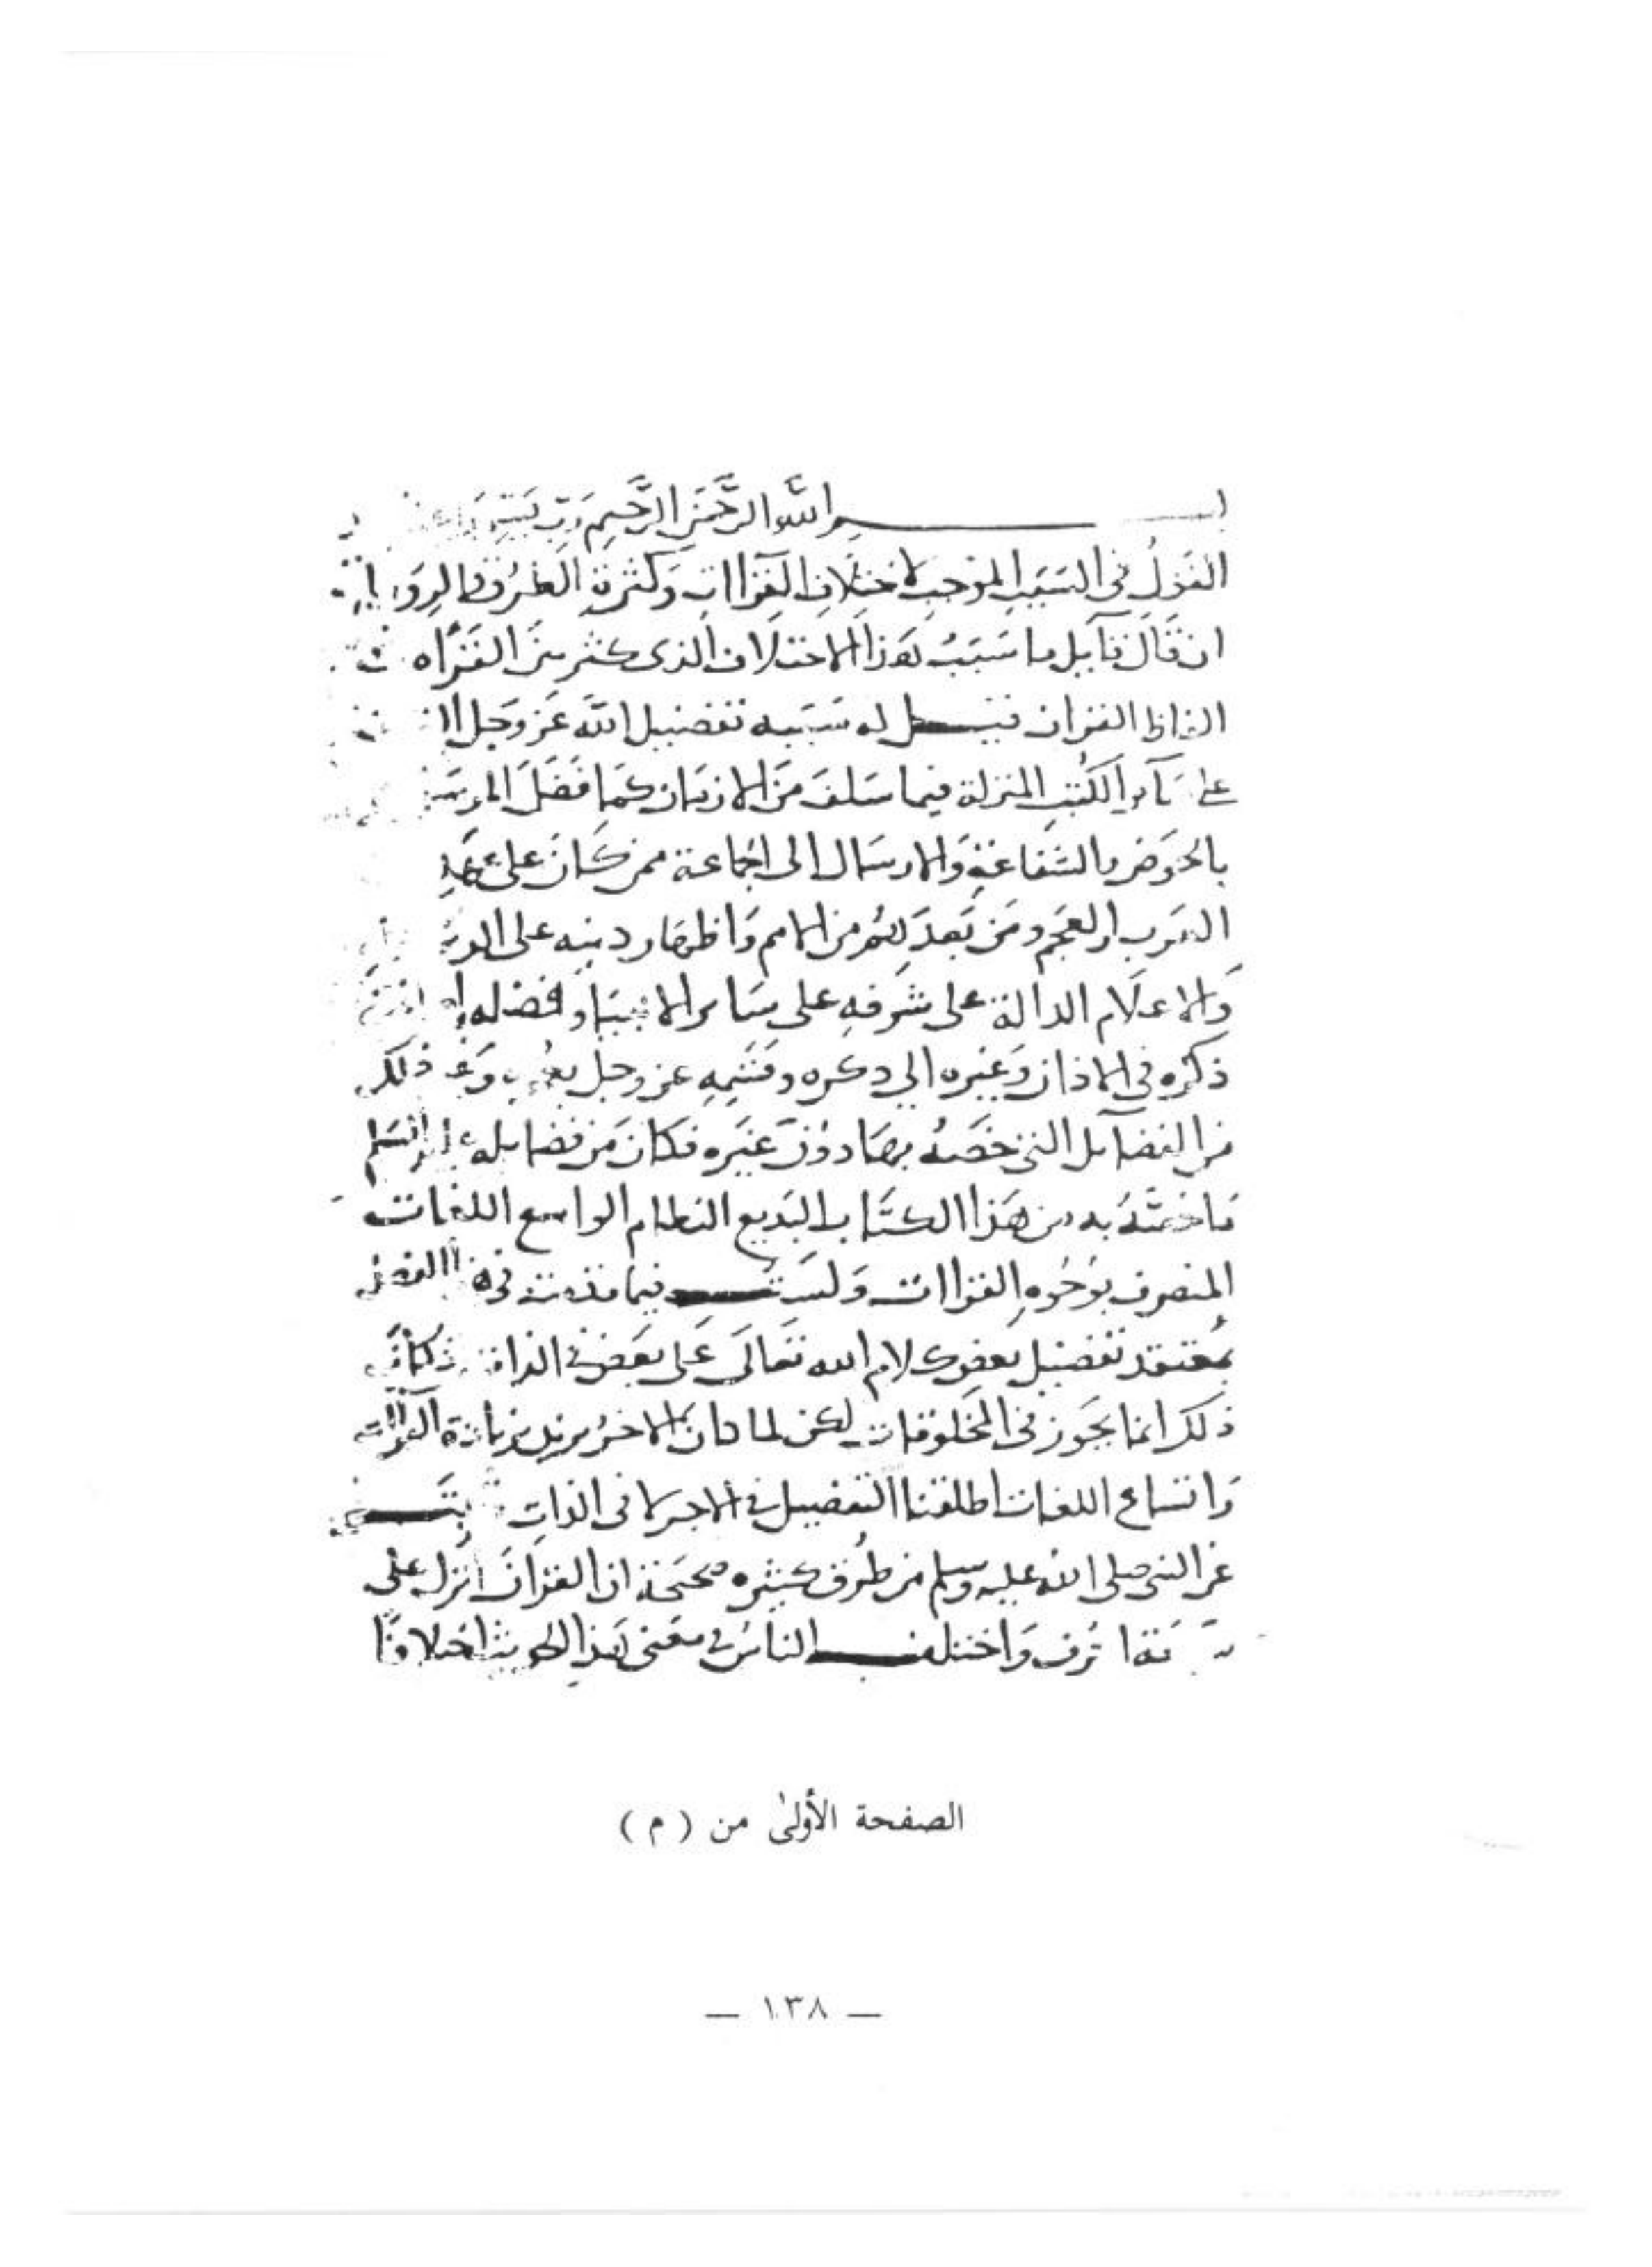 بسم الله الرَّحْمَنِ الرَّحِيمِ رَبِّ يَسِّر
القَولُ فى السَبَبِ المُوجبِ لاختلافِ القِرَاآتِ وَكثرةِ الطُرُقِ والرِوَايات
ان قَالَ قآيل ما سَبَبُ هَذا الاختلاف الذى كثر بينَ القُرّاء في
الفاظ القران فيقيل له سَبَبه تفضيل الله عَز وَجل
على سَآير الكُتبِ المنزلة فيما سَلفَ مِنَ الازمَان كمَا فَضَلَ
بالحَوضِ والشَفاعَةِ وَالارسَال الى الجماعة ممن كَانَ على
العَرب والعَجَم ومَن بَعدَهُم من الامم وَاظهَار دينه على
وَالاعلَام الدالة على شَرفهِ على سَاير الانبيَا وفضله
ذكره فى الاذان وَغَيره الى ذكره وقَسَمِهِ عز وجل بعُمره وَغير ذلك
من الفضآيل التى خصَّهُ بهَا دوُنَ غَيَره فكانَ مَن فضايله
مَا خصَّهُ به من هَذا الكتَاب البَديع النظام الواسع اللغات
المنصرف بوُجُوهِ القراات وَلسَت فيما قدمت فى هذا الفصل
بمُعتقد تفضيل بَعض كلام الله تَعَالَى عَلى بَعض فى الذات
ذلك انما يجَوز فى المخَلوقات لكن لما كان الاخرُ يزيد بزيادة القراات
وَاتساع اللغات اطلقنا التفضيل فى الاجر لا فى الذاتِ
عَن النبى صلى الله عليه وسلم من طُرُق كثيره صحيحَة ان القرانَ انزل على
وَاختلف الناسُ فى معَنى هَذا الحديث اختلافًا
الصفحة الأولىٰ من ( م )
— ١٣٨ —